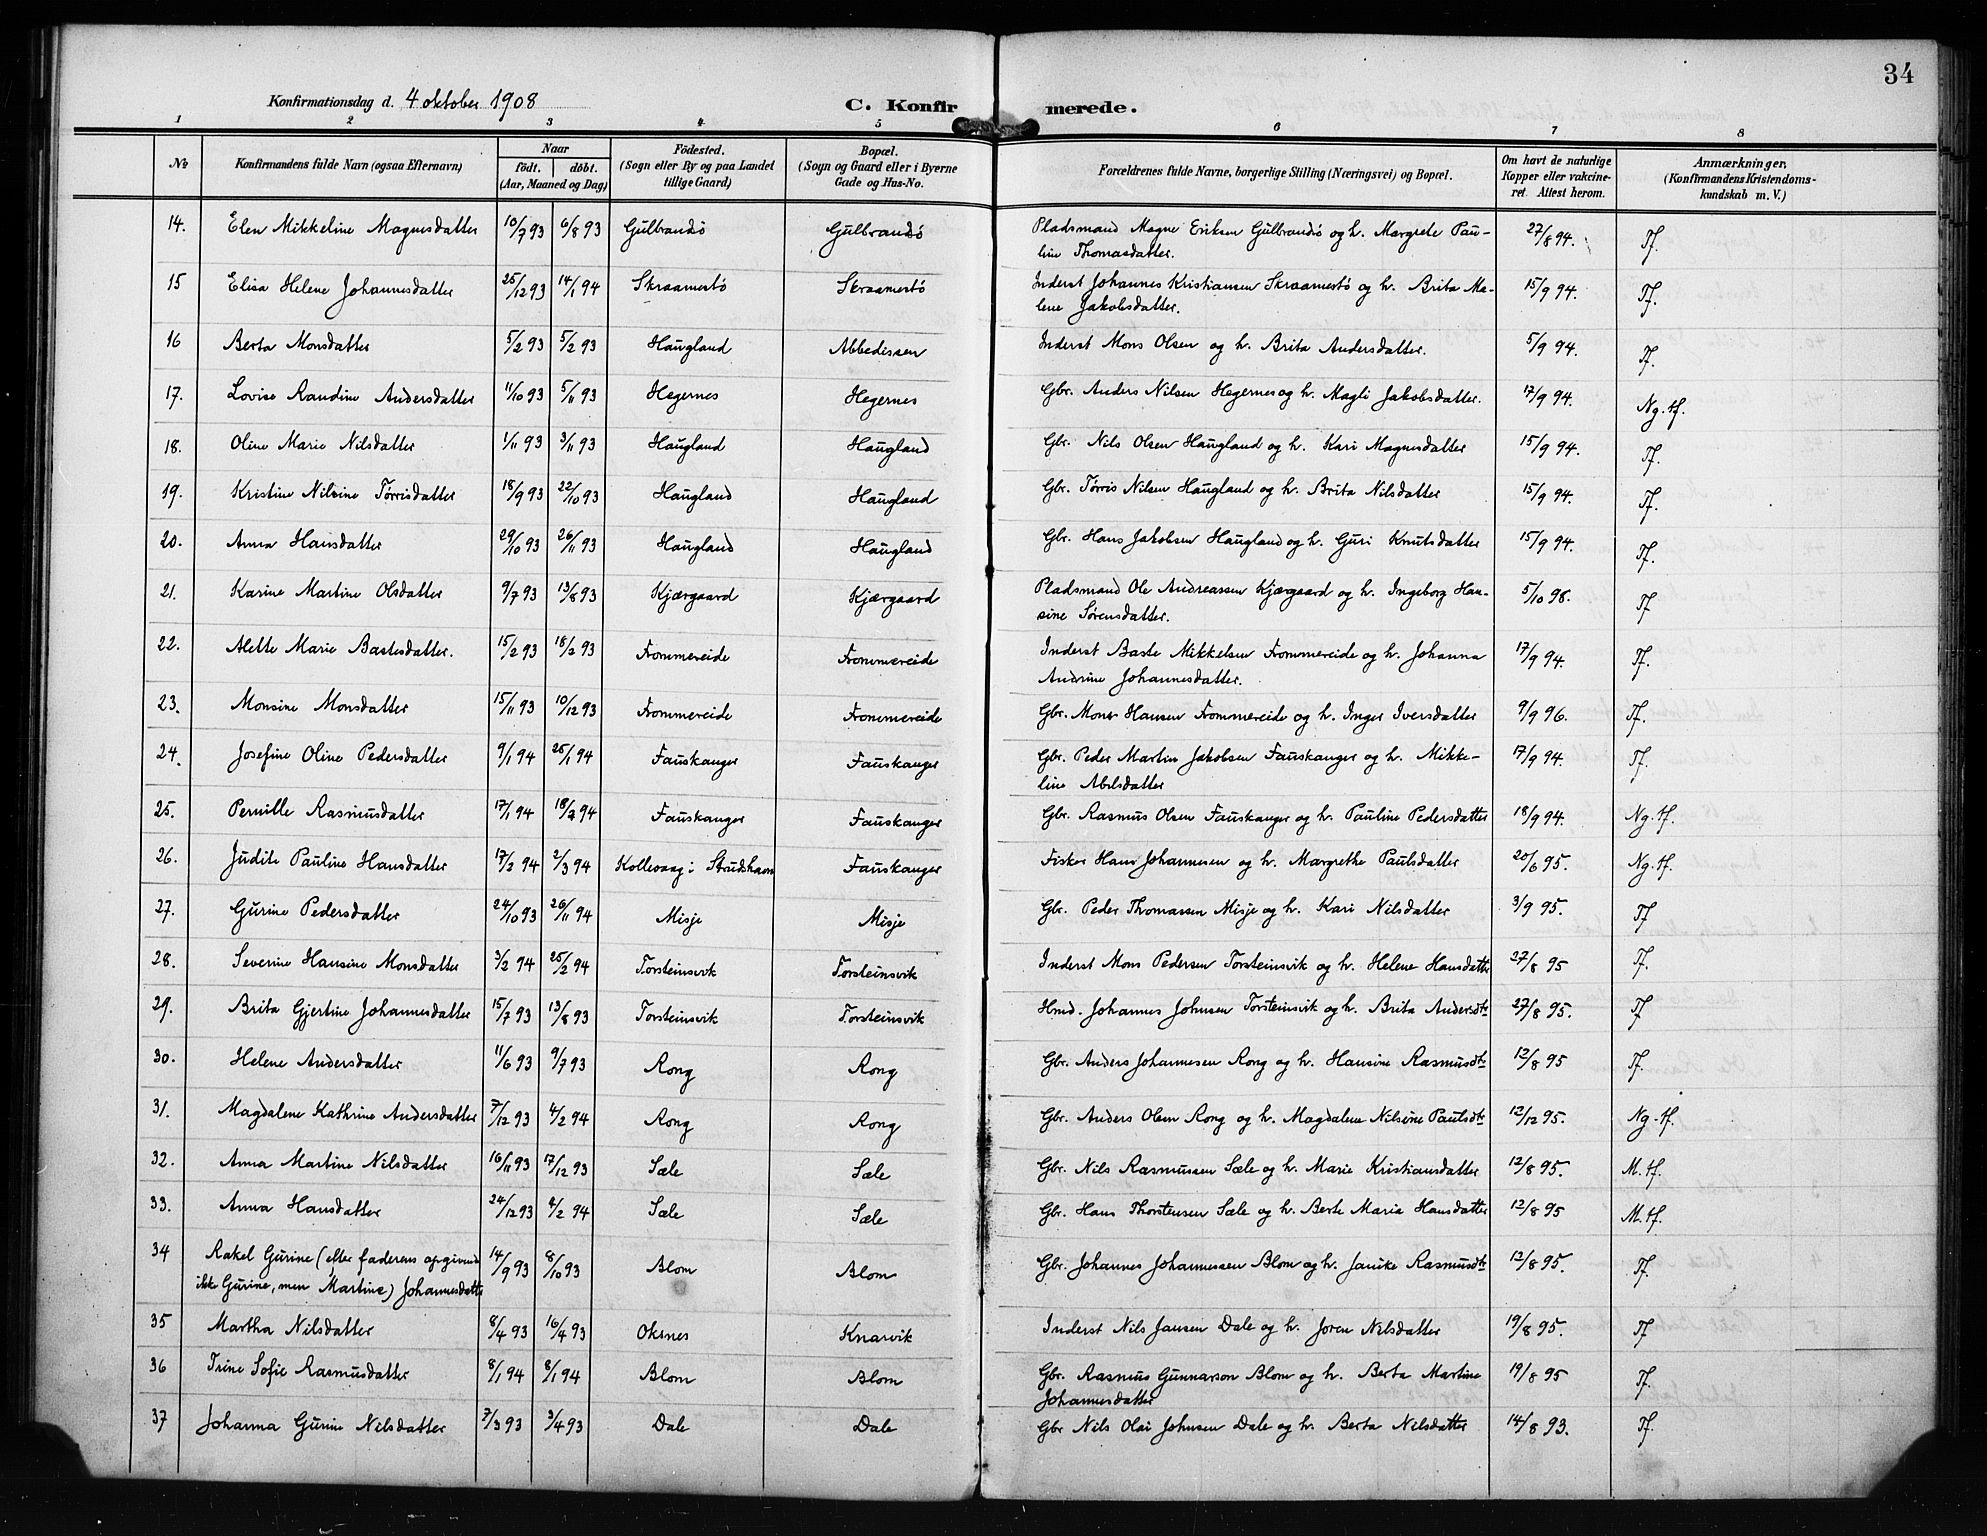 34
Konfirmationsdag d. 4 oktober 1908
C. Konfir merede.
1 2 3 4 5 6 7 8
No Konfirmandens fulde Navn (ogsaa Efternavn) Naar födt. döbt. (Aar, Maaned og Dag) Födested. (Sogn eller By og paa Landet tillige Gaard) Bopæl. (Sogn og Gaard eller i Byerne Gade og Hus-No. Forældrenes fulde Navne, borgerlige Stilling (Næringsvei) og Bopæl. Om havt de naturlige Kopper eller vakcineret. Attest herom. Anmærkninger. (Konfirmandens Kristendomskundskab m. V.)
14. Elen Mikkeline Magnesdatter 10/7 93 6/8 93 Gulbrandsö Gulbrandsö Pladsmand Magne Eriksen Gulbrandsö og h. Margrete Pau- 27/8 94. Tf.
line Thomasdatter.
15 Elisa Helene Johannesdatter 25/12 93 14/1 94 Skraamestö Skraamestö Inderst Johannes Kristiansen Skraamestö og h. Brita Ma- 15/9 94. Tf.
lene Jakobsdatter.
16 Berta Monsdatter 5/2 93 5/2 93 Haugland Abbedissen Inderst Mons Olsen og h. Brita Andersdatter. 5/9 94. Tf.
17. Lovise Randine Andersdatter 11/10 93 5/11 93 Hegernes Hegernes Gbr. Anders Nilsen Hegernes og h. Magli Jakobsdatter. 17/9 94. Ng. tf.
18. Oline Marie Nilsdatter 1/11 93 3/11 93 Haugland Haugland Gbr. Nils Olsen Haugland og h. Kari Magnesdatter 15/9 94. Tf.
19. Kristine Nilsine Tørrisdatter 18/9 93 22/10 93 Haugland Haugland Gbr. Tørris Nilsen Haugland og h. Brita Nilsdatter 15/9 94. Tf.
20. Anna Hansdatter 29/10 93 26/11 93 Haugland Haugland Gbr. Hans Jakobsen Haugland og h. Guri Knutsdatter 15/9 94. Tf.
21. Karine Martine Olsdatter 9/7 93 13/8 93 Kjærgaard Kjærgaard Pladsmand Ole Andreassen Kjærgaard og h. Ingeborg Han- 5/10 98. Tf
sine Sørensdatter.
22. Alette Marie Bastesdatter. 15/2 93 18/2 93 Frommereide Frommereide Inderst Baste Mikkelsen Frommereide og h. Johanna 17/9 94. Tf.
Andrine Johannesdatter.
23. Monsine Monsdatter 15/11 93 10/12 93 Frommereide Frommereide Gbr. Mons Hansen Frommereide og h. Inger Iversdatter 9/9 96. Tf.
24. Josefine Oline Pedersdatter 9/1 94 25/1 94 Fauskanger Fauskanger Gbr. Peder Martin Jakobsen Fauskanger og h. Mikke- 17/9 94. Tf.
line Abelsdatter
25. Pernille Rasmusdatter 17/1 94 18/2 94 Fauskanger Fauskanger Gbr. Rasmus Olsen Fauskanger og h. Pauline Pedersdatter 18/9 94. Ng. tf.
26. Judite Pauline Hansdatter 17/2 94 2/3 94 Kollevaag i Strudshavn Fauskanger Fisker Hans Johannesen og h. Margrethe Paulsdatter 20/6 95. Ng. tf.
27. Gurine Pedersdatter 24/10 93 26/11 94 Misje Misje Gbr. Peder Thomassen Misje og h. Kari Nilsdatter 3/9 95. Tf
28. Severine Hansine Monsdatter 3/2 94 25/2 94 Torsteinsvik Torsteinsvik Inderst Mons Pedersen Torsteinsvik og h. Helene Hansdatter 27/8 95 Tf.
29. Brita Gjertine Johannesdatter 15/7 93 13/8 93 Torsteinsvik Torsteinsvik Hmd. Johannes Johnsen Torsteinsvik og h. Brita Andersdtr 27/8 95. Tf
30. Helene Andersdatter 11/6 93 9/7 93 Rong Rong Gbr. Anders Johannesen Rong og h. Hansine Rasmusdtr 12/8 95 Tf.
31. Magdalene Kathrine Andersdatter 7/12 93 4/2 94 Rong Rong Gbr. Anders Olsen Rong og h. Magdalene Nilsine Paulsdtr 12/12 95. Ng. tf.
32. Anna Martine Nilsdatter 16/11 93 17/12 93 Sæle Sæle Gbr. Nils Rasmussen Sæle og h. Marie Kristiansdatter 12/8 95. M. tf.
33. Anna Hansdatter 24/12 93 4/2 94 Sæle Sæle Gbr. Hans Thorstensen Sæle og h. Berte Maria Hansdatter 12/8 95 M. tf.
34 Rakel Gurine (efter faderens opgivende 14/9 93 8/10 93 Blom Blom Gbr. Johannes Johannessen Blom og h. Janike Rasmusdtr 12/8 95. Tf.
ikke Gurine, men Martine) Johannesdatter
35 Martha Nilsdatter 8/4 93 16/4 93 Oksnes Knarvik Inderst Nils Jansen Dale og h. Joren Nilsdatter 19/8 95. Tf
36 Trine Sofie Rasmusdatter 8/1 94 8/1 94 Blom Blom Gbr. Rasmus Gunnarson Blom og h. Berta Martine 19/8 95 Tf.
Johannesdatter
37 Johanna Gurine Nilsdatter 7/3 93 3/4 93 Dale Dale Gbr Nils Olai Johnsen Dale og h. Berta Nilsdatter 14/8 93. Tf.